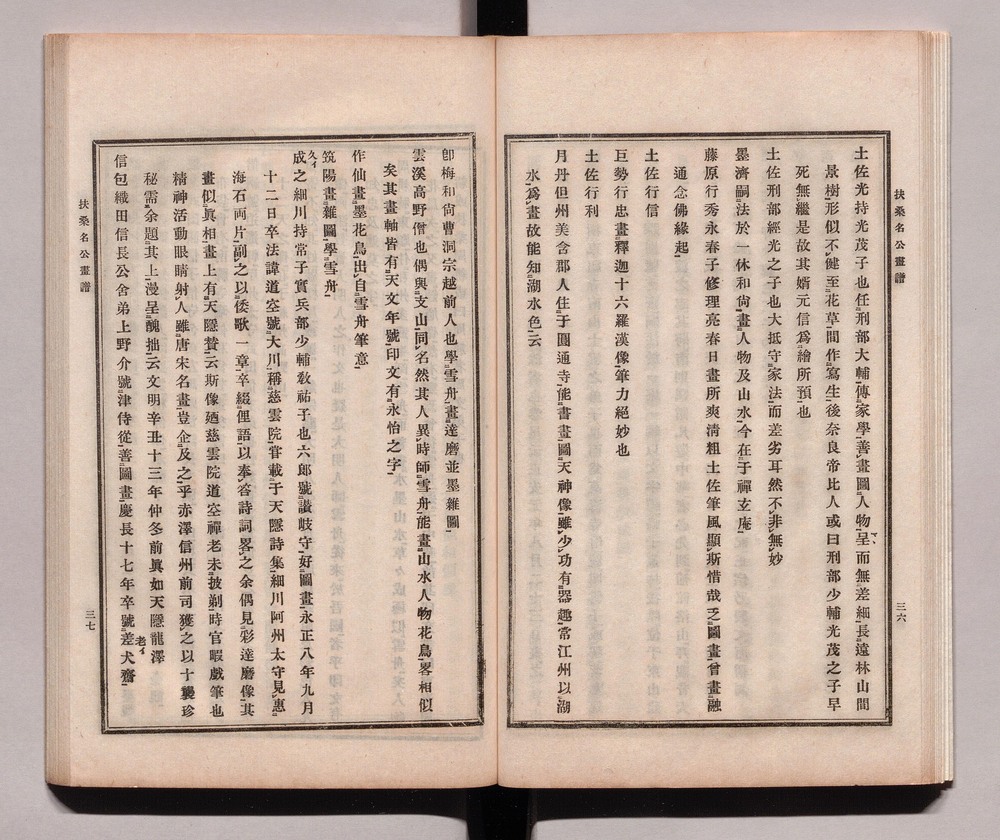 扶桑名公畫譜
三六
土佐光持光茂子也任刑部大輔傳家學善畫圖人物呈而無差細長遠林山間
景樹形似不健至花草間作寫生後奈良帝比人或曰刑部少輔光茂之子早
死無繼是故其婿元信爲繪所預也
土佐刑部經光之子也大抵守家法而差劣耳然不非無妙
墨濟嗣法於一休和尙畫人物及山水今在于禪玄庵
藤原行秀永春子修理亮春日畫所爽淸粗土佐筆風顯斯惜哉乏圖畫曾畫融
通念佛緣起
土佐行信
巨勢行忠畫釋迦十六羅漢像筆力絕妙也
土佐行利
月丹但州美含郡人住于圓通寺能書畫圖天神像雖少功有器趣常江州以湖
水爲畫故能知湖水色云
卽梅和尙曹洞宗越前人也學雪舟畫達磨並墨雜圖
雲溪高野僧也偶與支山同名然其人異時師雪舟能畫山水人物花鳥畧相似
矣其畫軸皆有天文年號印文有永怡之字
作仙畫墨花鳥出自雪舟筆意
筑陽畫雜圖學雪舟
成之細川持常子實兵部少輔敎祐子也六郞號讚岐守好圖畫永正八年九月
久イ
十二日卒法諱道空號大川稱慈雲院官載于天隱詩集細川阿州太守見惠
海石兩片副之以倭歌一章卒綴俚語以奉答詩詞畧之余偶見彩達磨像其
畫似眞相畫上有天隱贊云斯像廼慈雲院道空禪老未披剃時官暇戲筆也
精神活動眼睛射人雖唐宋名畫豈企及之乎赤澤信州前司獲之以十襲珍
秘需余題其上漫呈醜拙云文明辛丑十三年仲冬前眞如天隱龍澤
老イ
信包織田信長公舍弟上野介號津侍從善圖畫慶長十七年卒號差犬齋
扶桑名公畫譜
三七